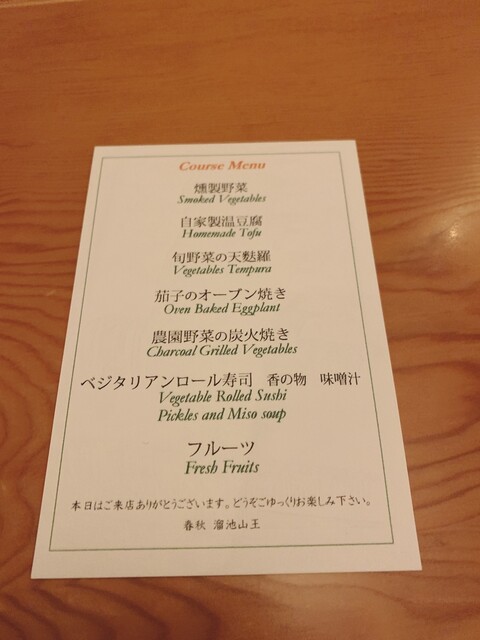 Course Menu
燻製野菜
Smoked Vegetables
自家製温豆腐
Homemade Tofu
旬野菜の天麩羅
Vegetables Tempura
茄子のオーブン焼き
Oven Baked Eggplant
農園野菜の炭火焼き
Charcoal Grilled Vegetables
ベジタリアンロール寿司 香の物 味噌汁
Vegetable Rolled Sushi
Pickles and Miso soup
フルーツ
Fresh Fruits
本日はご来店ありがとうございます。どうぞごゆっくりお楽しみ下さい。
春秋 溜池山王